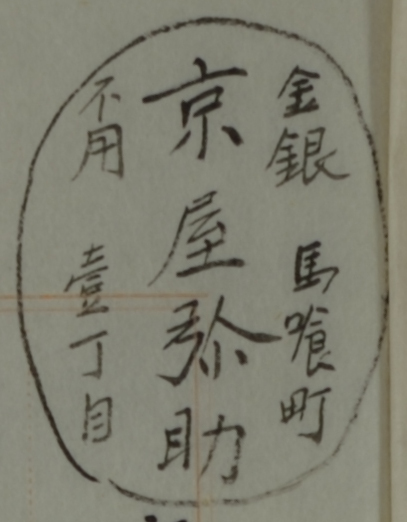 金銀 馬喰町
京屋弥助
不用 壹丁目